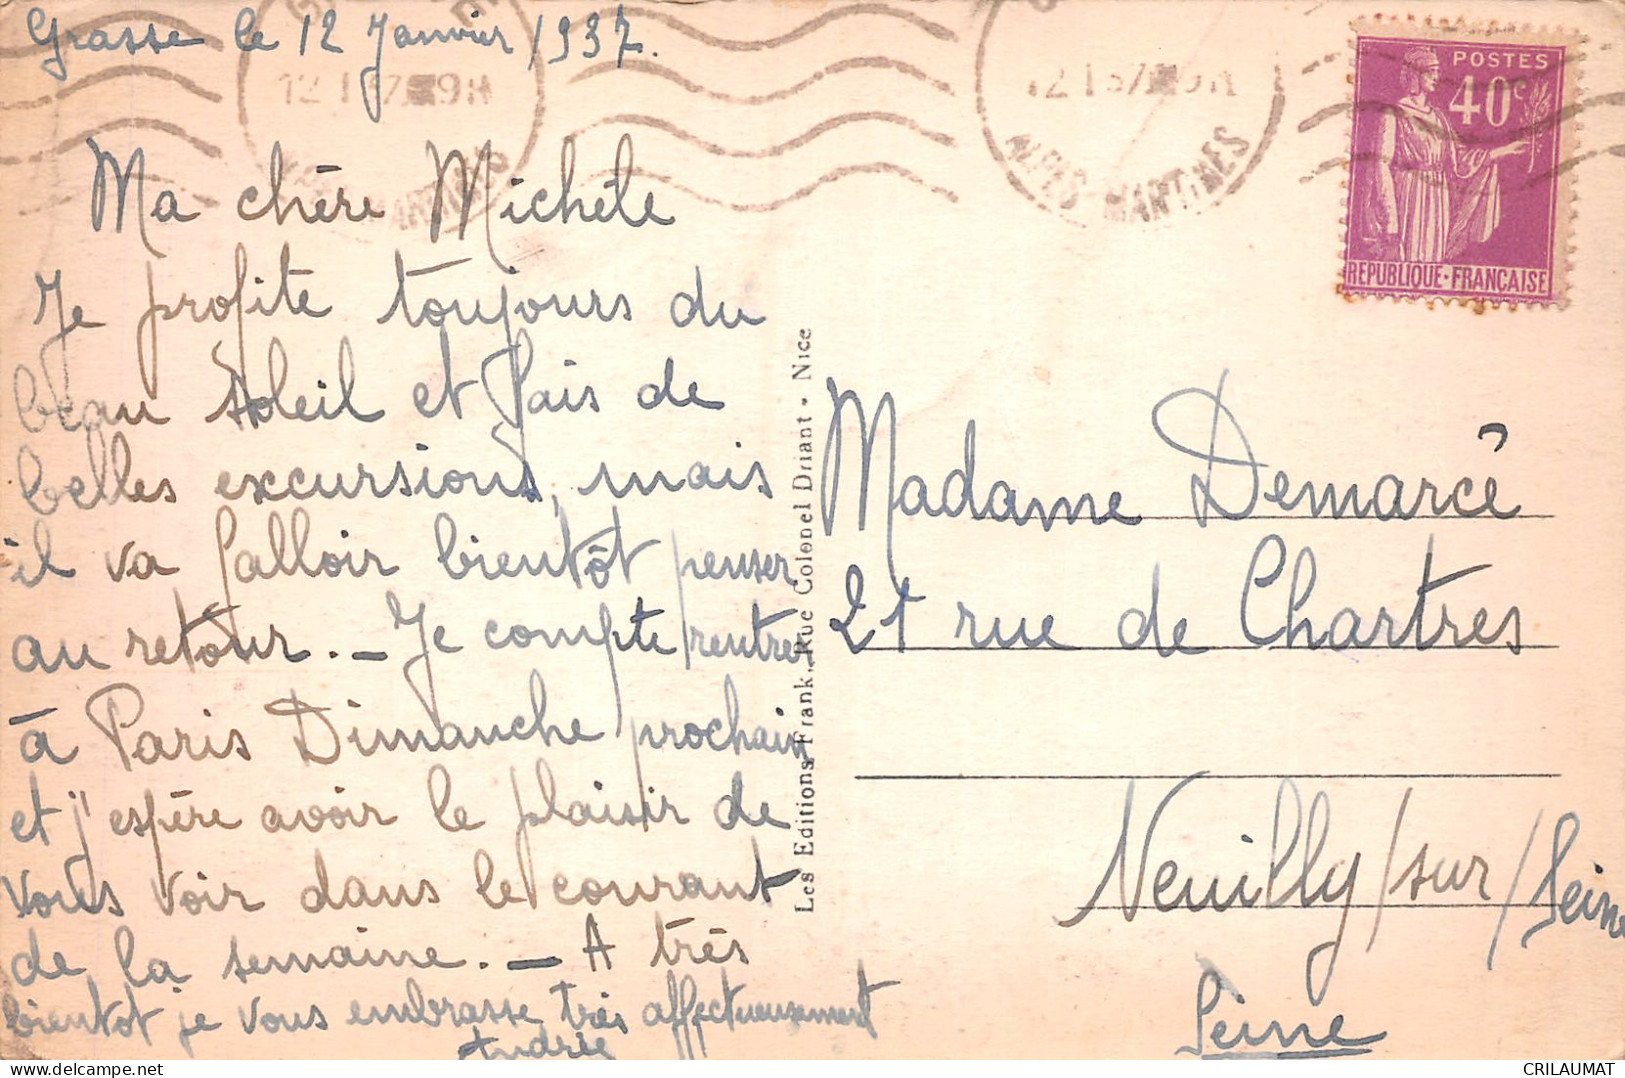 Grasse le 12 Janvier 1937.
12 I 37 9H
12 I 37 9H
ALPES-MARITIMES
POSTES
40c
REPUBLIQUE-FRANÇAISE
Ma chère Michèle
Je profite toujours du
beau soleil et fais de
belles excursions, mais
il va falloir bientôt penser
au retour. — Je compte rentrer
à Paris Dimanche prochain
et j'espère avoir le plaisir de
vous voir dans le courant
de la semaine. — A très
bientot je vous embrasse très affectueusement
Andrée
Les Editions Frank, Rue Colonel Driant - Nice
Madame Demarcé
21 rue de Chartres
Neuilly/sur/Seine
Seine
CRILAUMAT